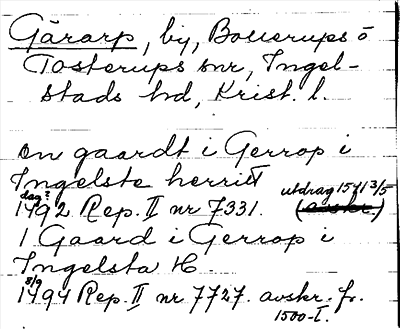 Gärarp, by, Bollerups o
Tosterups snr, Ingel-
stads hd, Krist. l.
en gaardt i Gerrop i
Ingelste herritt
dag? utdrag 1571 3/5
1492 Rep. II nr 7331. (avskr.)
1 Gaard i Gerrop i
Ingelsta H.
8/9
1494 Rep. II nr 7727. avskr. fr.
1500-t.